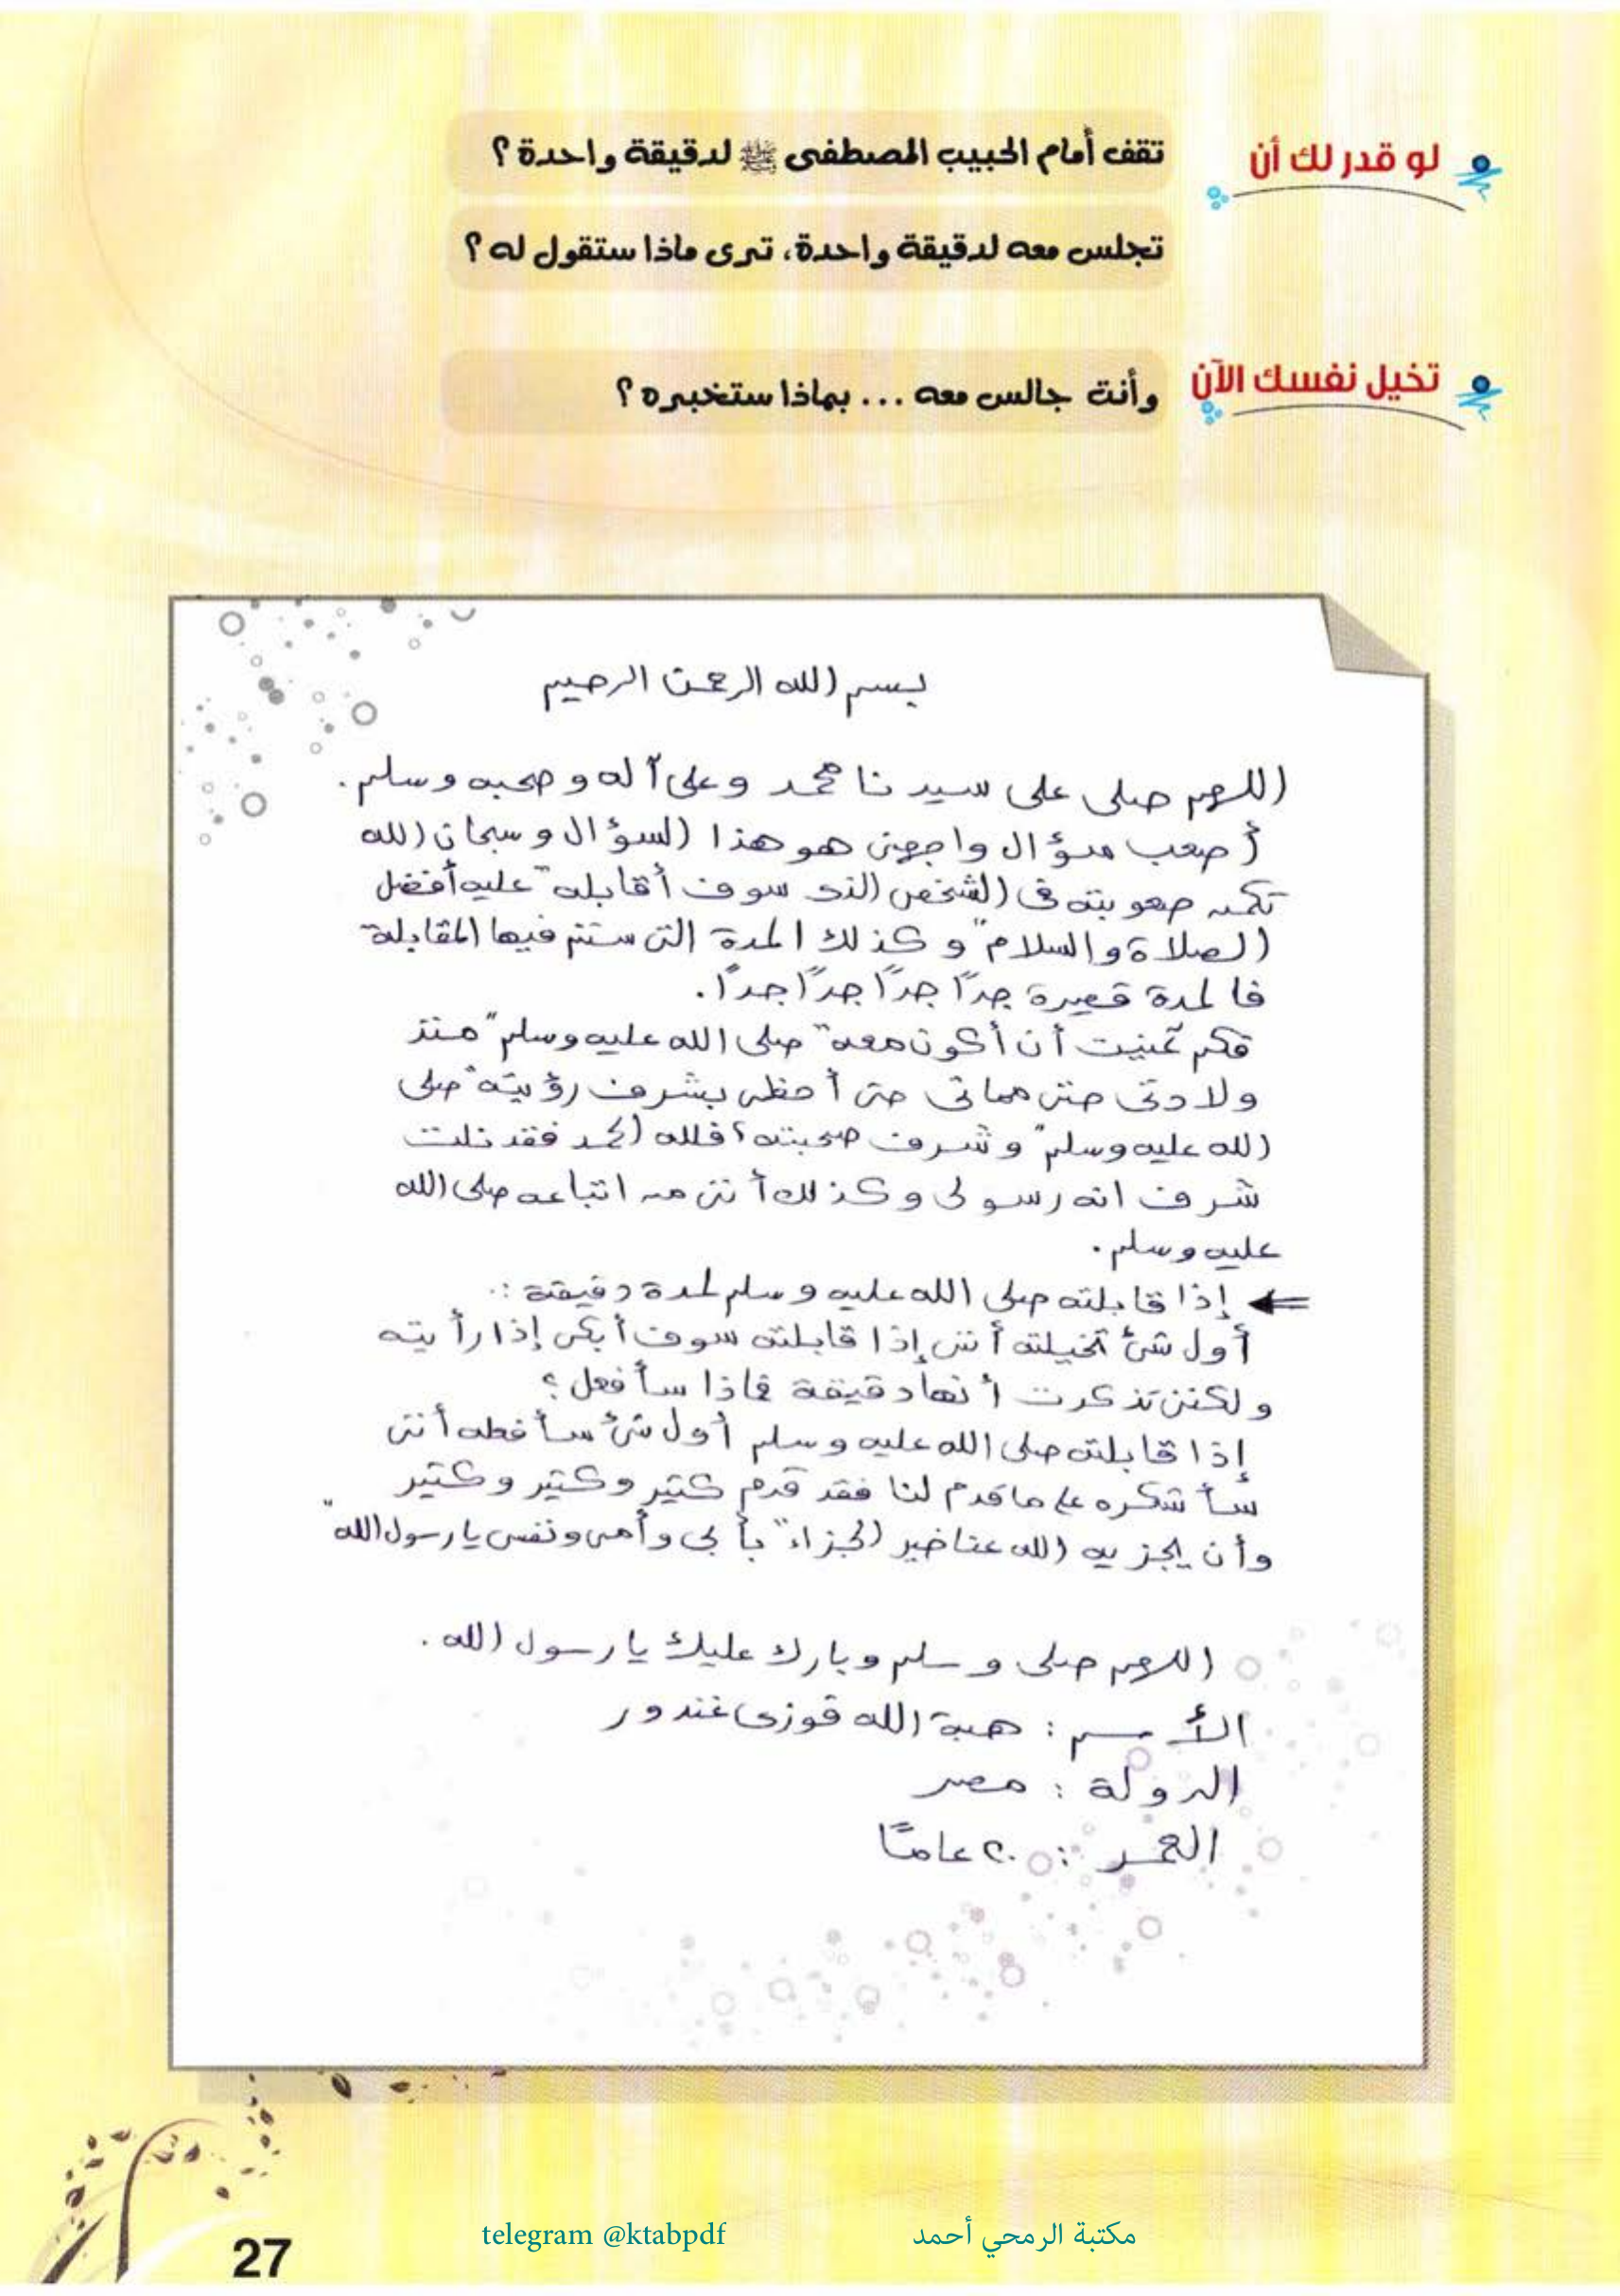 لو قدر لك أن تقف أمام الحبيب المصطفى ﷺ لدقيقة واحدة ؟
تجلس معه لدقيقة واحدة، ترى ماذا ستقول له ؟
تخيل نفسك الآن وأنت جالس معه ... بماذا ستخبره ؟
بسم الله الرحمن الرحيم
اللهم صلى على سيدنا محمد وعلى آله وصحبه وسلم.
أصعب سؤال واجهنى هو هذا السؤال وسبحان الله
تكمن صعوبته فى الشخص الذى سوف أقابله "عليه أفضل
الصلاة والسلام" وكذلك المدة التى ستتم فيها المقابلة
فالمدة قصيرة جداً جداً جداً جداً.
فكم تمنيت أن أكون معه "صلى الله عليه وسلم" منذ
ولادتى حتى مماتى حتى أحظى بشرف رؤيته "صلى
الله عليه وسلم" وشرف صحبته؟ فلله الحمد فقد نلت
شرف انه رسولى وكذلك أننى من اتباعه صلى الله
عليه وسلم.
إذا قابلته صلى الله عليه وسلم لمدة دقيقة :.
أول شئ تخيلته أننى إذا قابلته سوف أبكى إذا رأيته
ولكننى تذكرت أنها دقيقة فماذا سأفعل؟
إذا قابلته صلى الله عليه وسلم أول شئ سأفعله أننى
سأشكره على ما قدم لنا فقد قدم كتير وكتير وكتير
وأن يجزيه الله عنا خير الجزاء "بأبى وأمى ونفسى يا رسول الله"
اللهم صلى وسلم وبارك عليك يا رسول الله.
الأسم : هبة الله فوزى غندور
الدولة : مصر
العمر : ٢٠ عاماً
telegram @ktabpdf مكتبة الرمحي أحمد
27